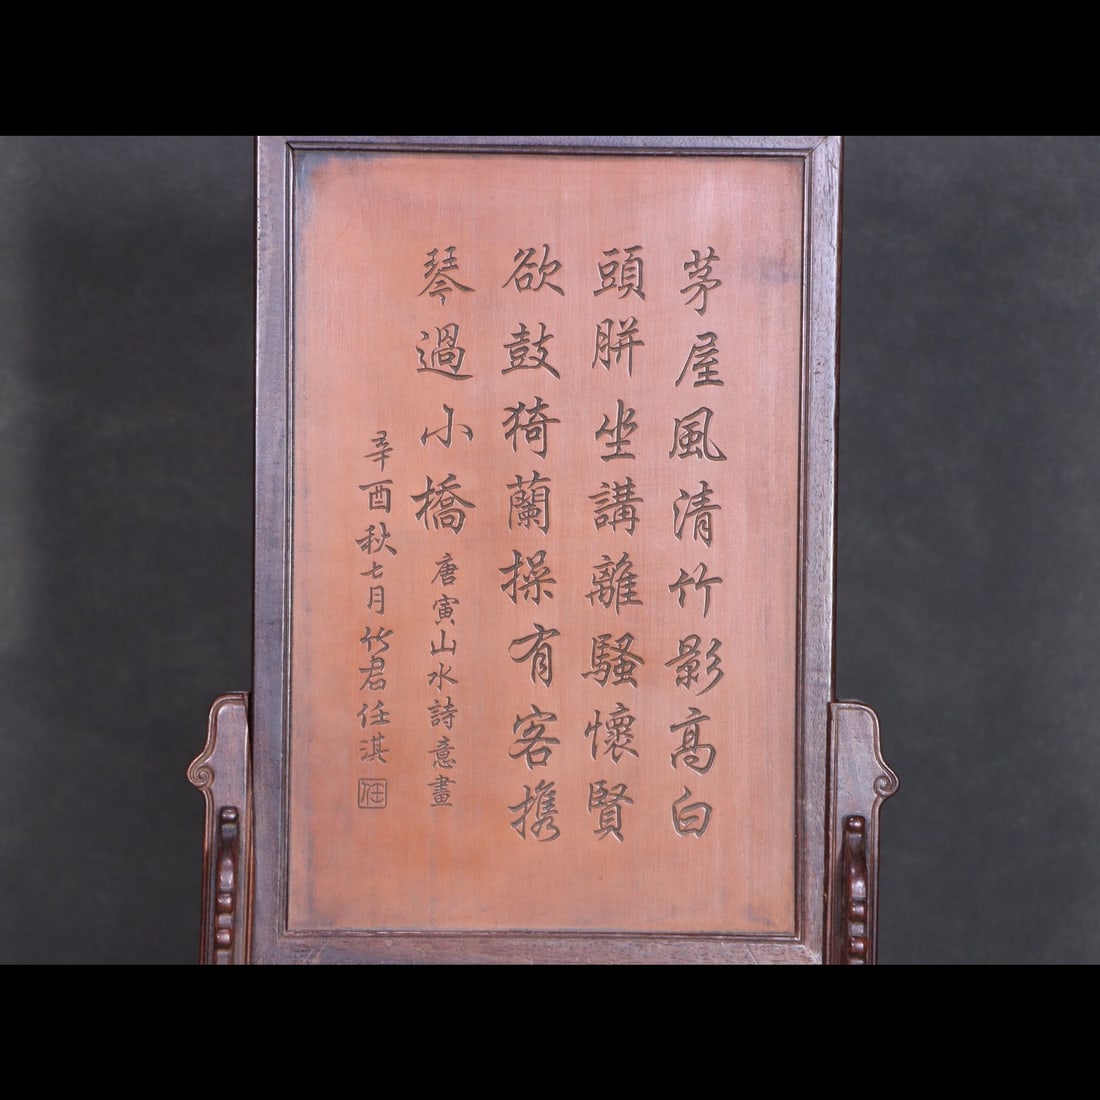 茅屋風清竹影高白
頭胼坐講離騷懷賢
欲鼓猗蘭操有客攜
琴過小橋
唐寅山水詩意畫
辛酉秋七月竹君任淇
任